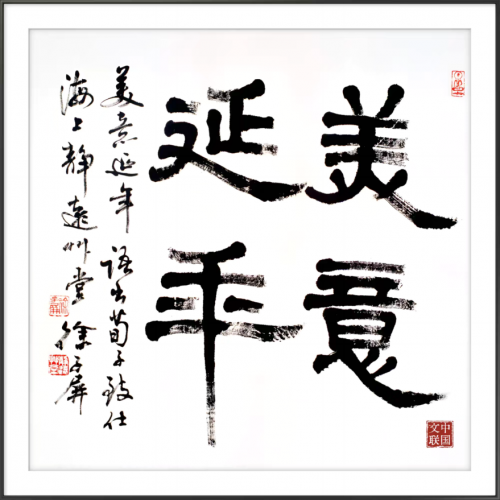 美意
延年
美意延年 语出荀子致仕
海上静远草堂 徐子屏
中国
文联